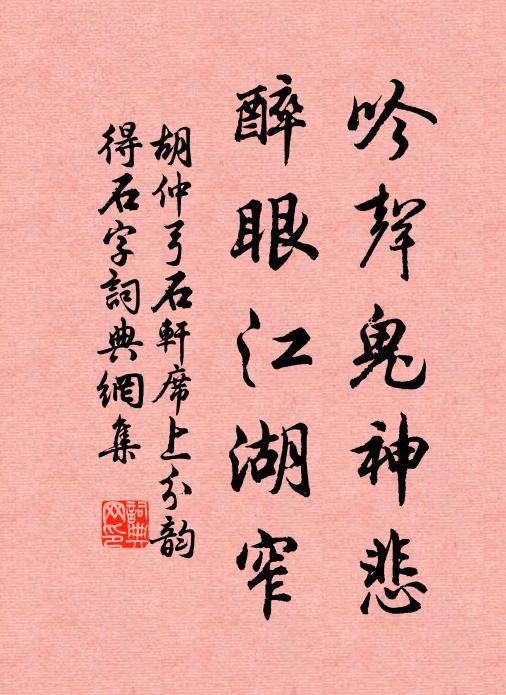 吟聲鬼神悲
醉眼江湖窄
胡仲弓石軒席上分韵
得石字詞典網集
詞典網印